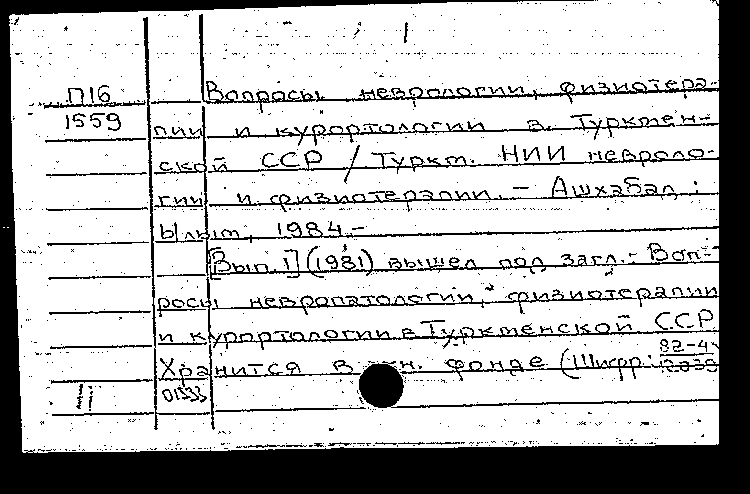 П16
1559
Вопросы неврологии, физиотера-
пии и курортологии в Туркмен-
ской ССР / Туркм. НИИ невроло-
гии и физиотерапии. – Ашхабад :
Ылым, 1984.–
[Вып. 1] (1981) вышел под загл.: Воп-
росы невропатологии, физиотерапии
и курортологии в Туркменской ССР
Хранится в фонде (Шифр: